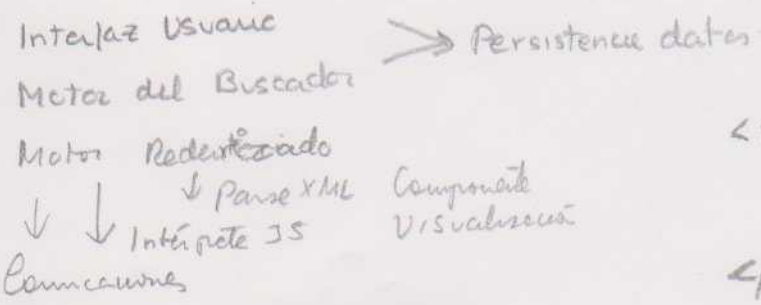 Interfaz Usuario
> Persistencia datos
Motor del Buscador
Motor Renderizado
↓ Parse XML Componente
↓ ↓ Intérprete JS Visualización
Comunicaciones
<
<